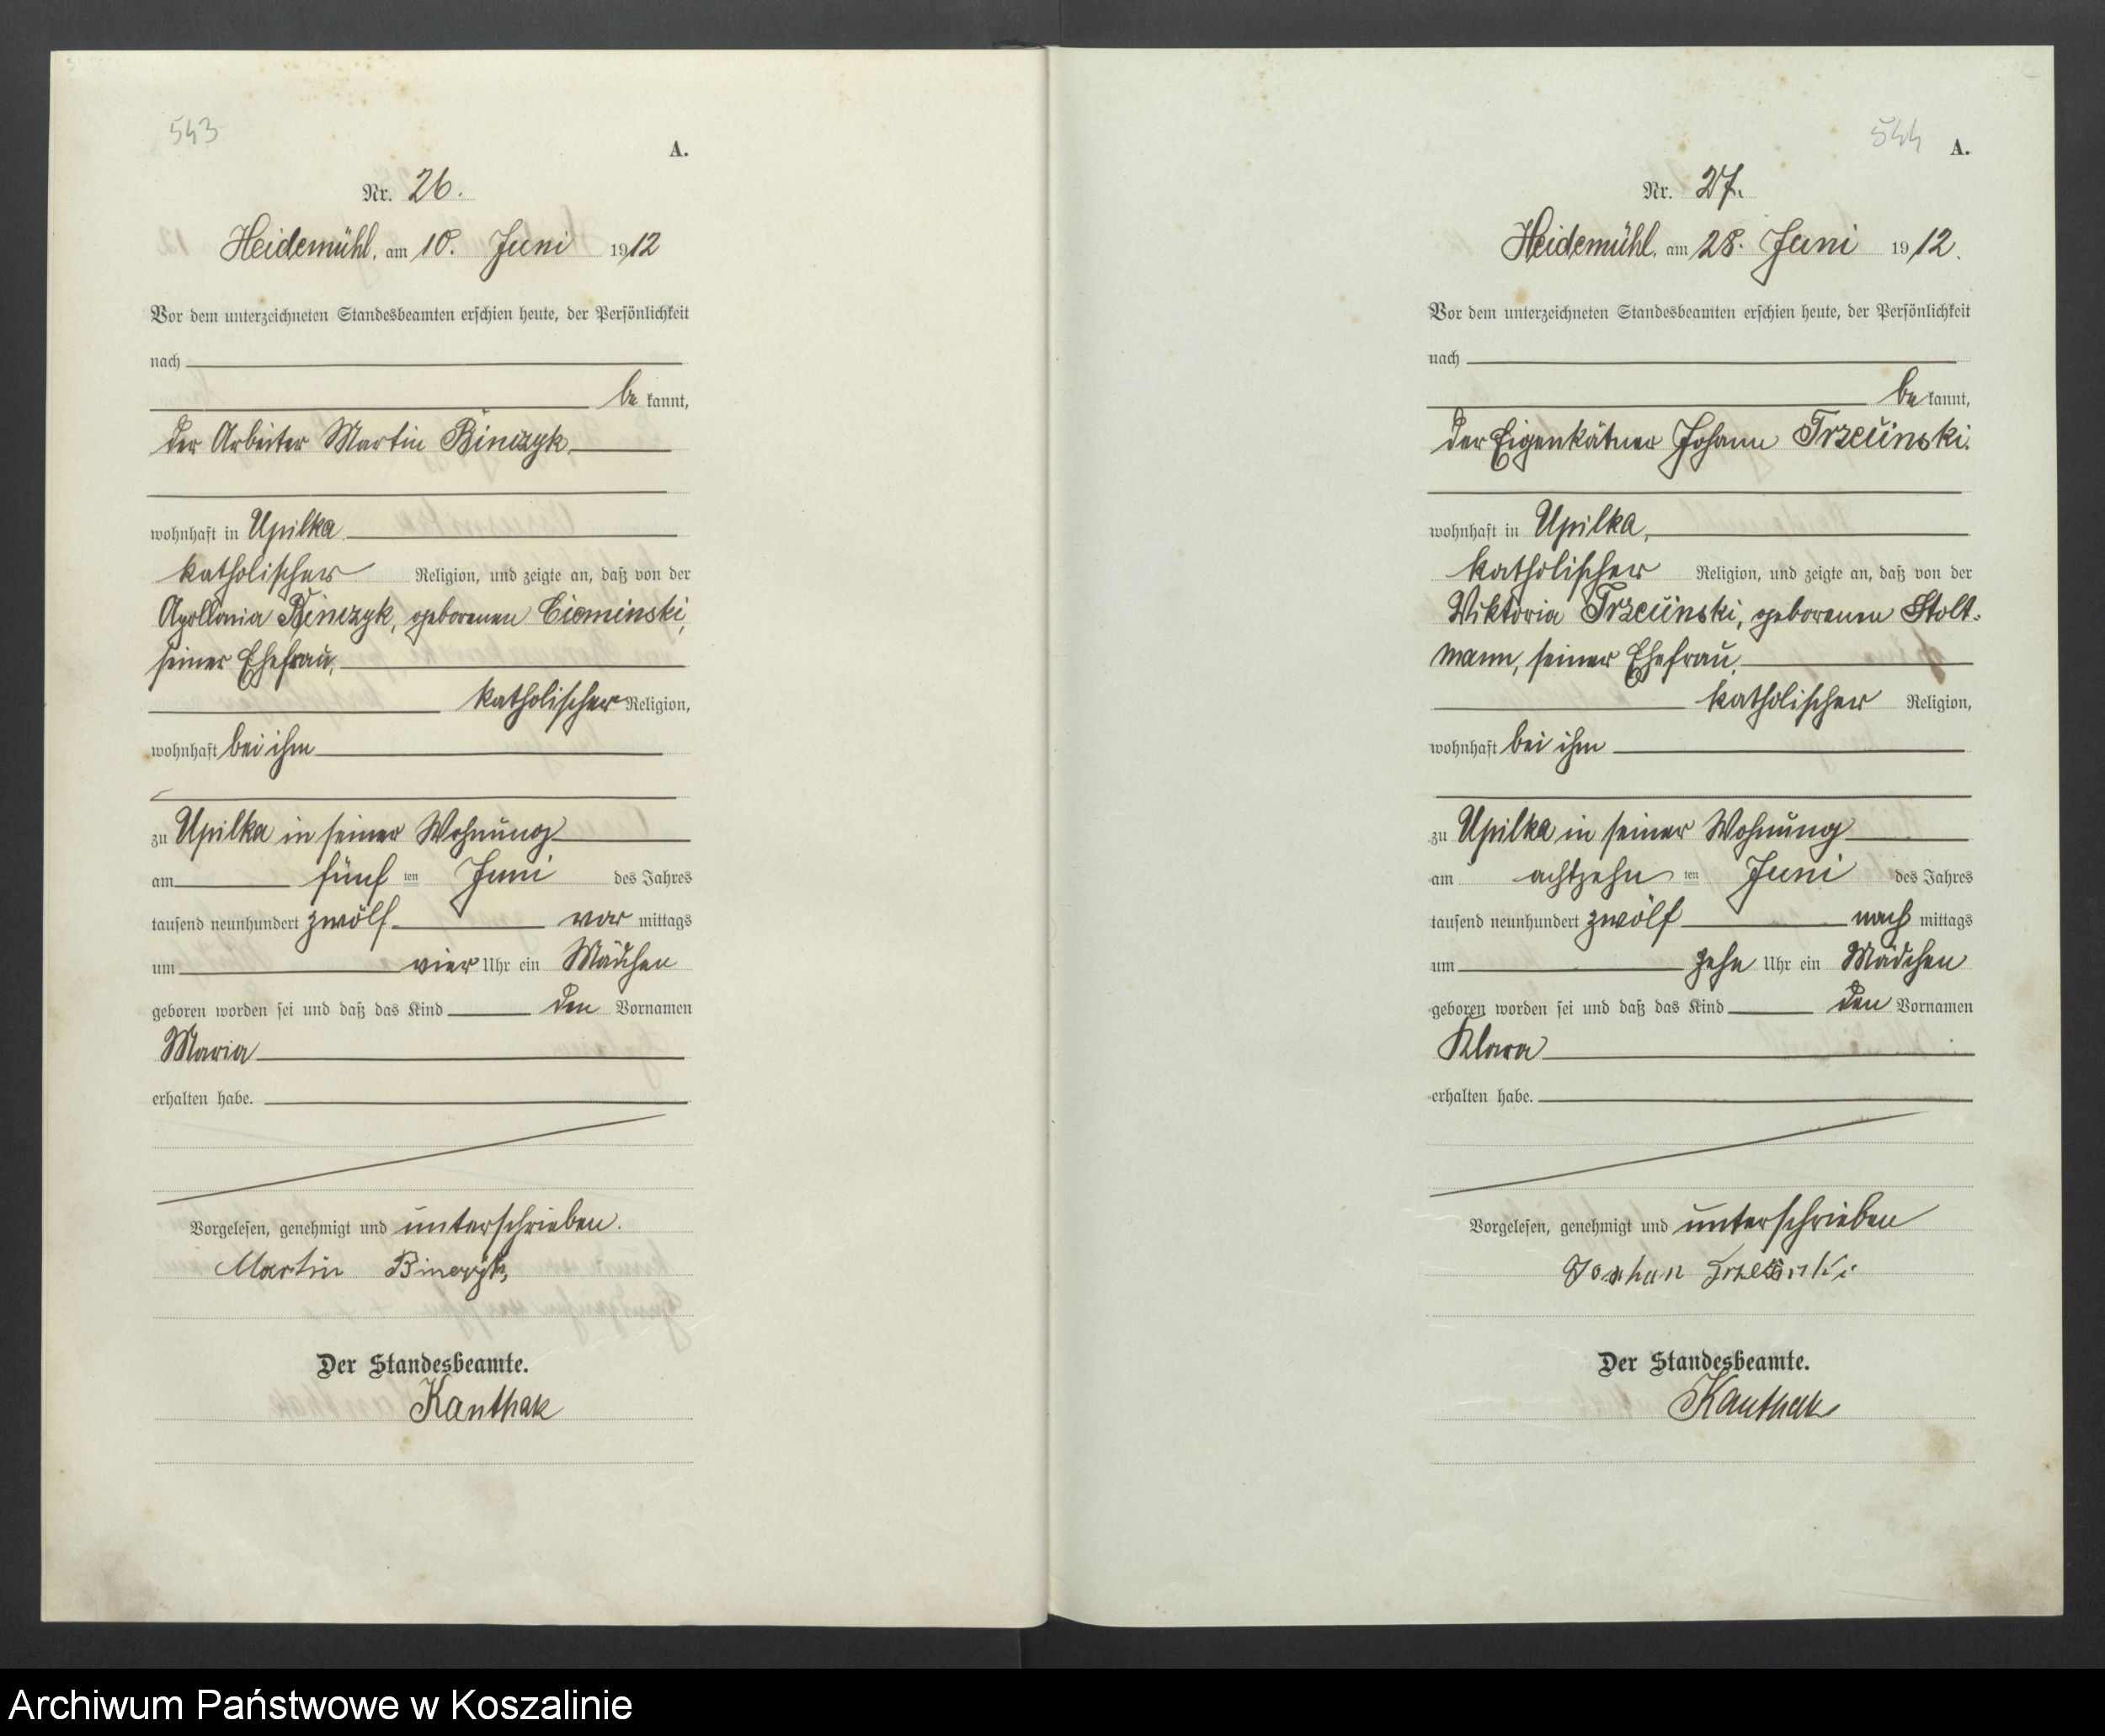 543
A.
Nr. 26.
Heidemühl, am 10. Juni 1912
Vor dem unterzeichneten Standesbeamten erschien heute, der Persönlichkeit
nach
be kannt,
der Arbeiter Martin Binczyk,
wohnhaft in Upilka
katholischer Religion, und zeigte an, daß von der
Apollonia Binczyk, geborenen Ciominski,
seiner Ehefrau,
katholischer Religion,
wohnhaft bei ihm
zu Upilka in seiner Wohnung
am fünf ten Juni des Jahres
tausend neunhundert zwölf vor mittags
um vier Uhr ein Mädchen
geboren worden sei und daß das Kind den Vornamen
Maria
erhalten habe.
Vorgelesen, genehmigt und unterschrieben.
Martin Binczyk,
Der Standesbeamte.
Kanthak
544
A.
Nr. 27.
Heidemühl, am 28. Juni 1912.
Vor dem unterzeichneten Standesbeamten erschien heute, der Persönlichkeit
nach
be kannt,
der Eigenkätner Johann Trzciinski.
wohnhaft in Upilka,
katholischer Religion, und zeigte an, daß von der
Viktoria Trzciinski, geborenen Stolt-
mann, seiner Ehefrau,
katholischer Religion,
wohnhaft bei ihm
zu Upilka in seiner Wohnung
am achtzehn ten Juni des Jahres
tausend neunhundert zwölf nach mittags
um zehn Uhr ein Mädchen
geboren worden sei und daß das Kind den Vornamen
Klara
erhalten habe.
Vorgelesen, genehmigt und unterschrieben
Der Standesbeamte.
Kanthak
Archiwum Państwowe w Koszalinie